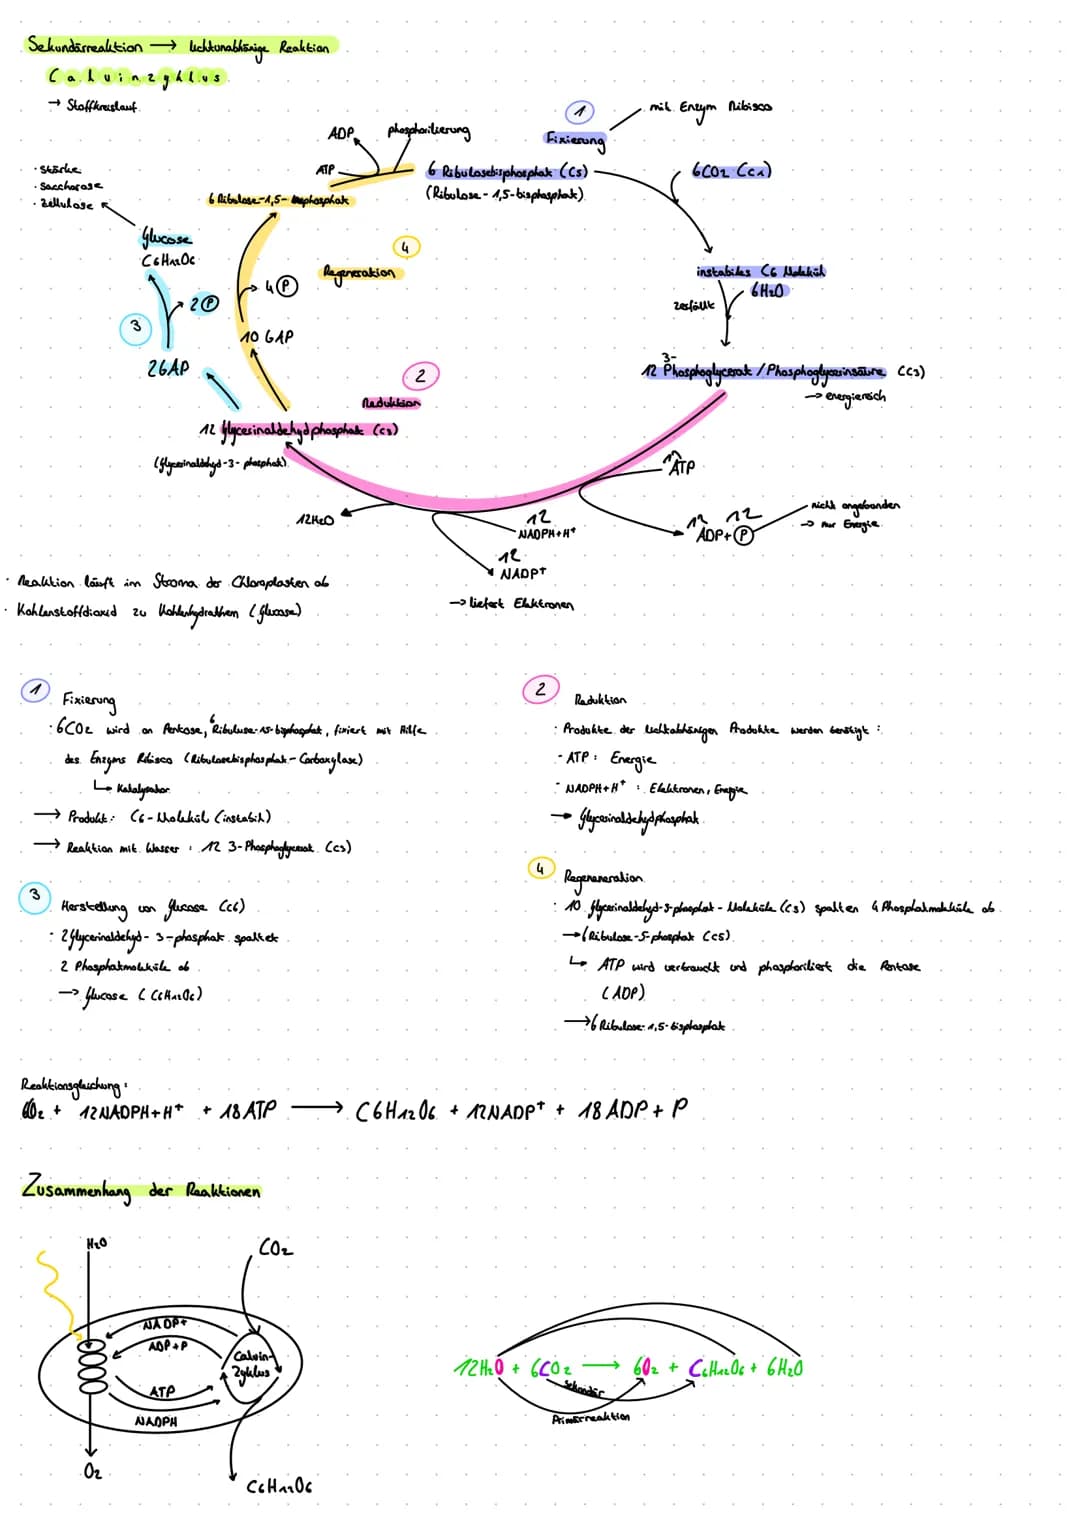 Sekundärreaktion → lichtunabhänige Reaktion
Calvinzyklus
→ Stoffkreislauf
· Stärke
· Saccharose
· Zellulose
Glucose
C6H12O6
2 P
3
2GAP
ADP
phosphorilierung
ATP
6 Ribulose-1,5-bisphosphat
4 P
10 GAP
4
Regeneration
1
Fixierung
mit Enzym Ribisco
6 Ribulosebisphosphat (C5)
(Ribulose-1,5-bisphosphat)
6CO2 (C1)
instabiles C6 Molekül
6H2O
zerfällt
3-
12 Phosphoglycerat / Phosphoglycerinsäure (C3)
→ energiereich
2
Reduktion
12 Glycerinaldehydphosphat (C3)
(Glycerinaldehyd-3-phosphat)
12H2O
12
NADPH+H+
12
NADP+
→ liefert Elektronen
ATP
12 12
ADP + P
nicht angebunden
→ nur Energie
· Reaktion läuft im Stroma der Chloroplasten ab
· Kohlenstoffdioxid zu Kohlenhydrathen (Glucose)
1
Fixierung
· 6CO2 wird an Pentose, 6 Ribulose-1,5-bisphosphat, fixiert mit Hilfe
des Enzyms Ribisco (Ribulosebisphosphat-Carboxylase)
↳ Katalysator
→ Produkt: C6-Molekül (instabil)
→ Reaktion mit Wasser: 12 3-Phosphoglycerat (C3)
2
Reduktion
· Produkte der lichtabhänigen Produkte werden benötigt:
- ATP: Energie
- NADPH+H+ : Elektronen, Energie
→ Glycerinaldehydphosphat
3
Herstellung von Glucose (C6)
· 2 Glycerinaldehyd-3-phosphat spaltet
2 Phosphatmoleküle ab
→ Glucose (C6H12O6)
4
Regeneneration
· 10 Glycerinaldehyd-3-phosphat-Moleküle (C3) spalten 4 Phosphatmoleküle ab
→ 6 Ribulose-5-phosphat (C5)
↳ ATP wird verbraucht und phosphoriliert die Pentose
(ADP)
→ 6 Ribulose-1,5-bisphosphat
Reaktionsgleichung:
6CO2 + 12NADPH+H+ + 18ATP → C6H12O6 + 12NADP+ + 18ADP + P
Zusammenhang der Reaktionen
H2O
CO2
NADP+
ADP+P
Calvin-
Zyklus
ATP
NADPH
O2
C6H12O6
12H2O + 6CO2 → 6O2 + C6H12O6 + 6H2O
Sekundär
Primärreaktion